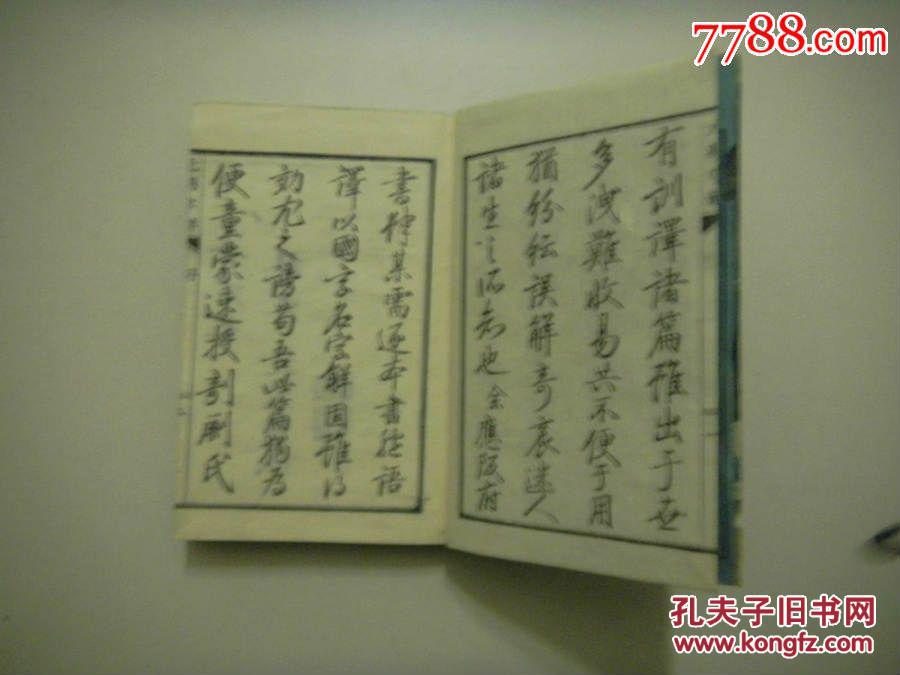 7788.com
有訓譯諸篇雖出于世
多洩難收易共不便于用
猶紛紜誤解奇衺迷人
諸生之所知也 余應阪府
書肆某需逐本書從語
譯以國字名字解固雖得
効尤之謗苟吾此篇獨為
便童蒙速授剞劂氏
孔夫子旧书网
www.kongfz.com